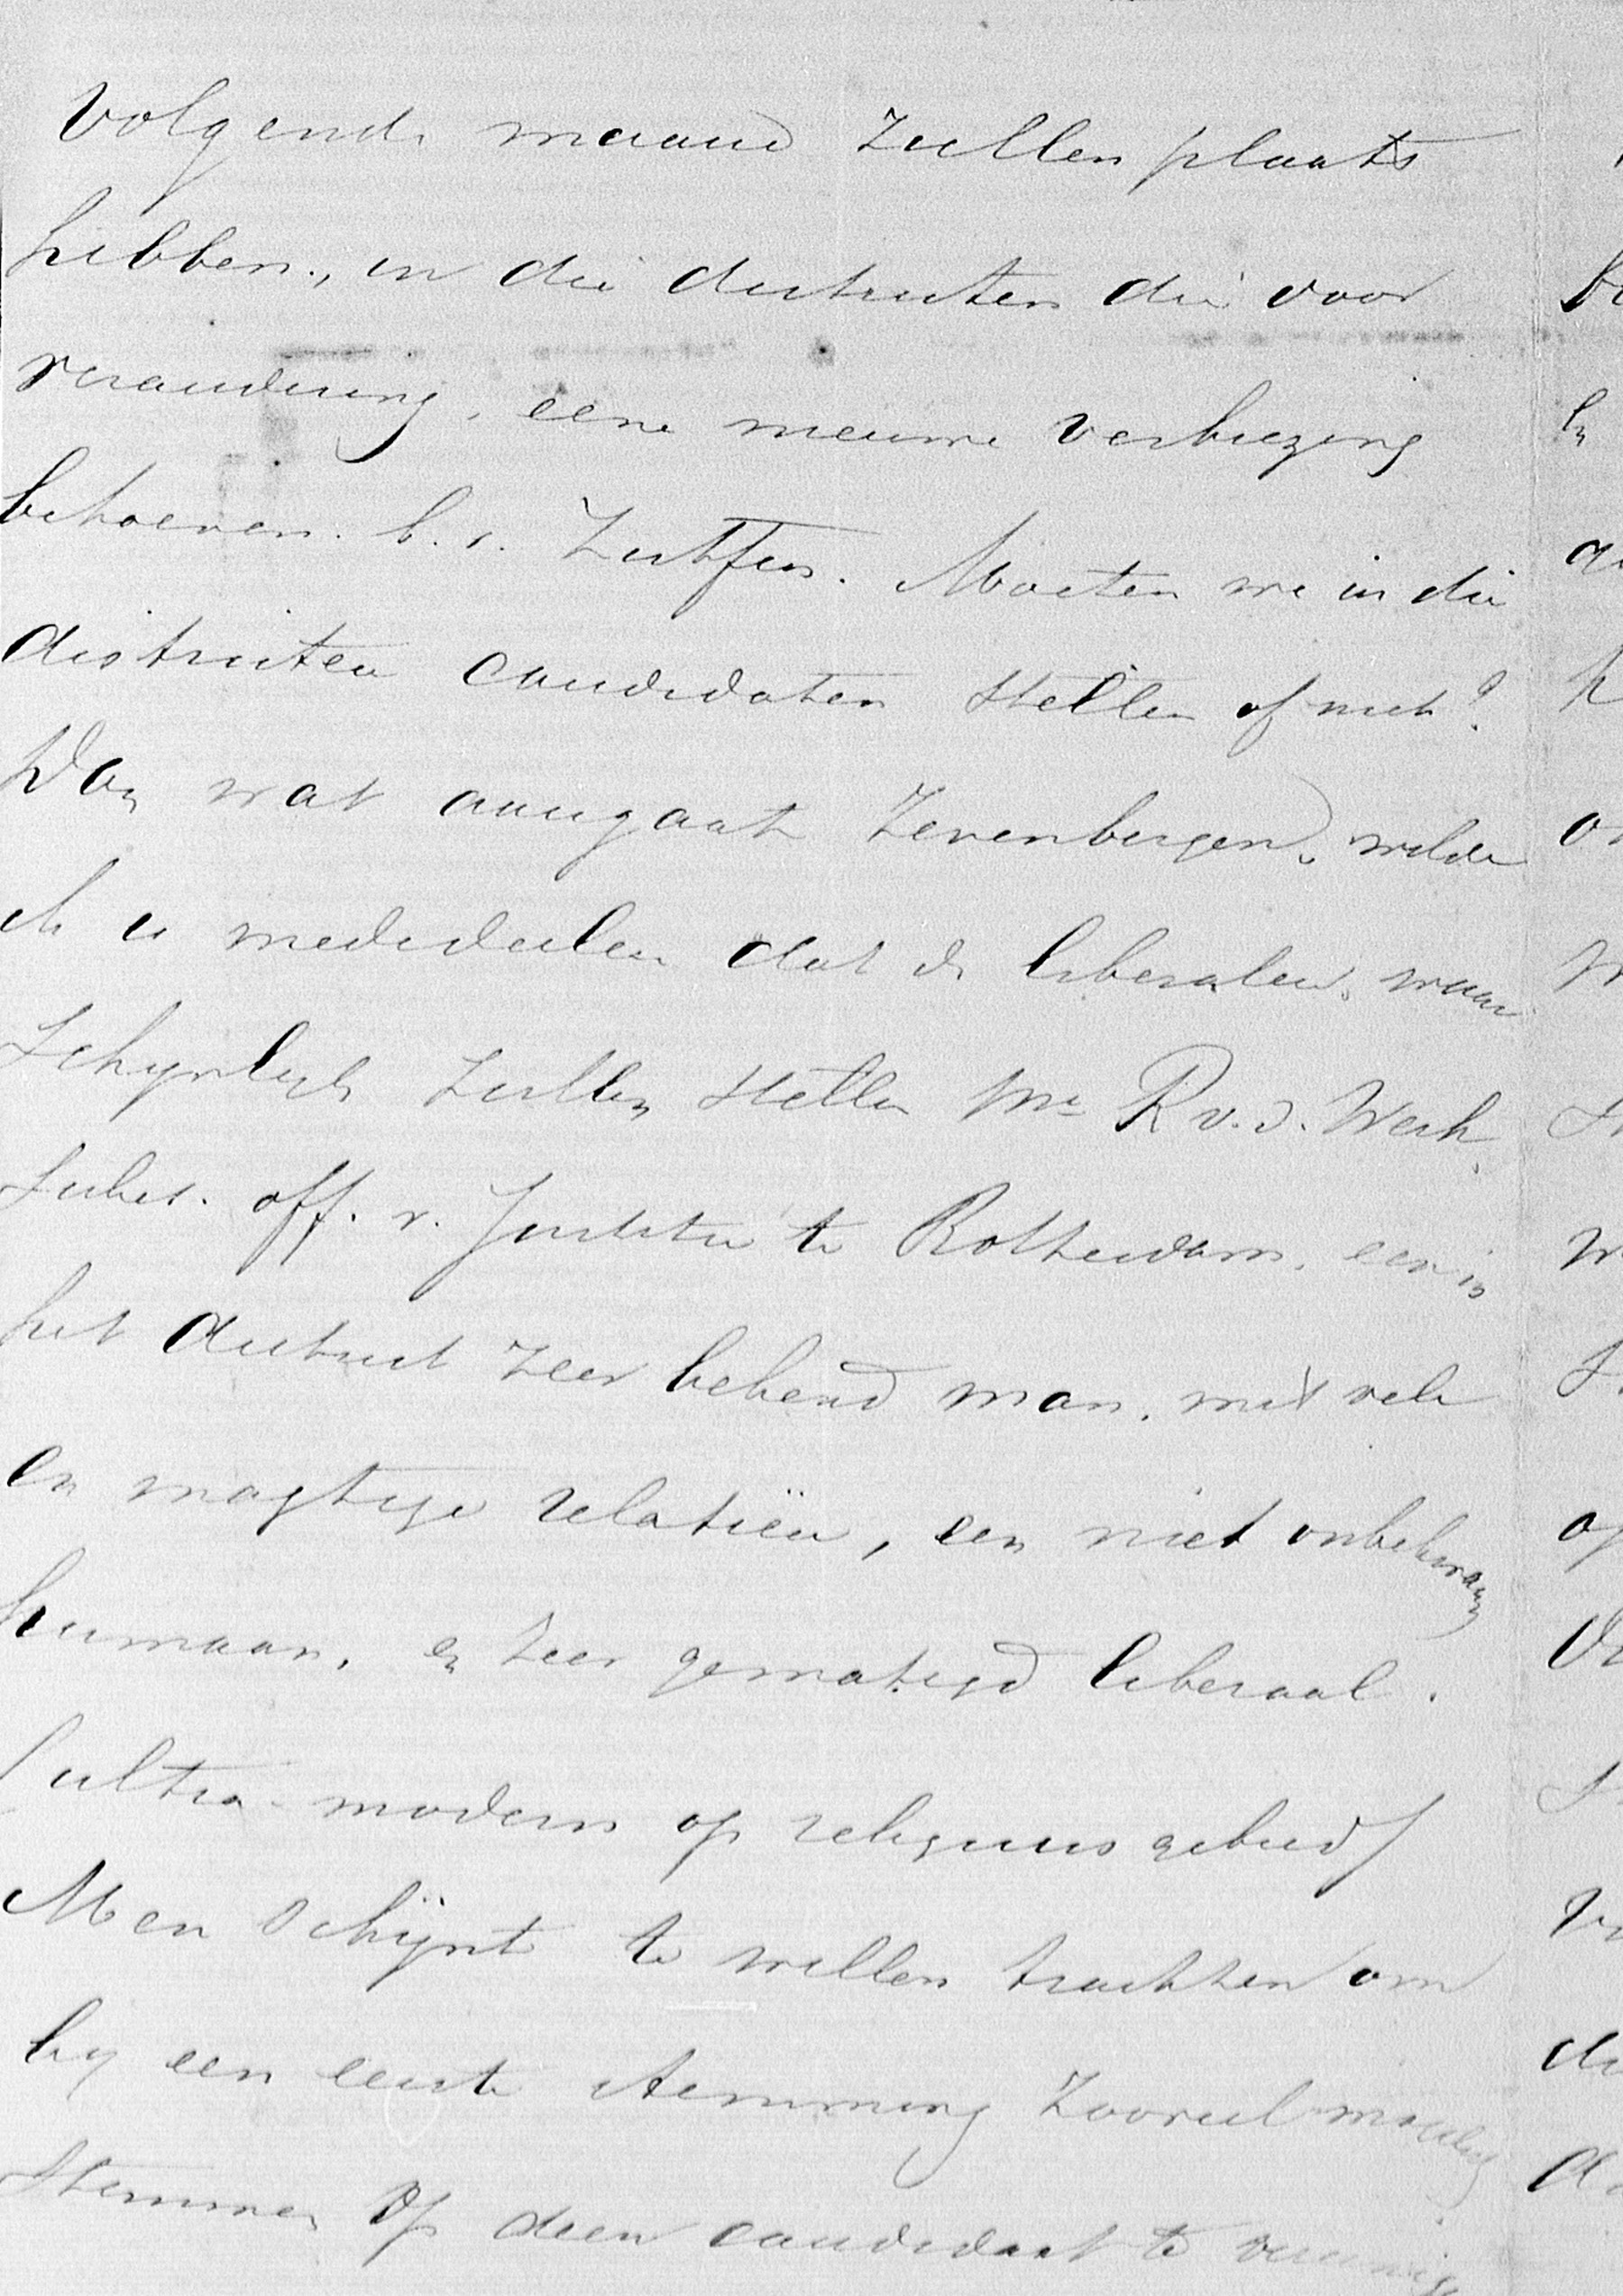 volgende maand zullen plaats
hebben, in die districten die voor
verandering, eene nieuwe verkiezing
behoeven. b.v. Zutfen. Moeten we in die
districten candidaten stellen of niet?
Dan wat aangaat Zevenbergen, wilde
ik u mededeelen dat de liberalen, waar
schynlyk zullen stellen Mr R v.d. Werk,
subst. off. v. Justitie te Rotterdam, een in
het district zeer bekend man, met vele
en magtige relatiën, een niet onbekwaam
humaan, en zeer gematigd liberaal.
(ultra-modern op religieus gebied)
Men schijnt te willen trachten om
by een eerste stemming zooveel mogelyk
stemmen op dien candidaat te vereenige